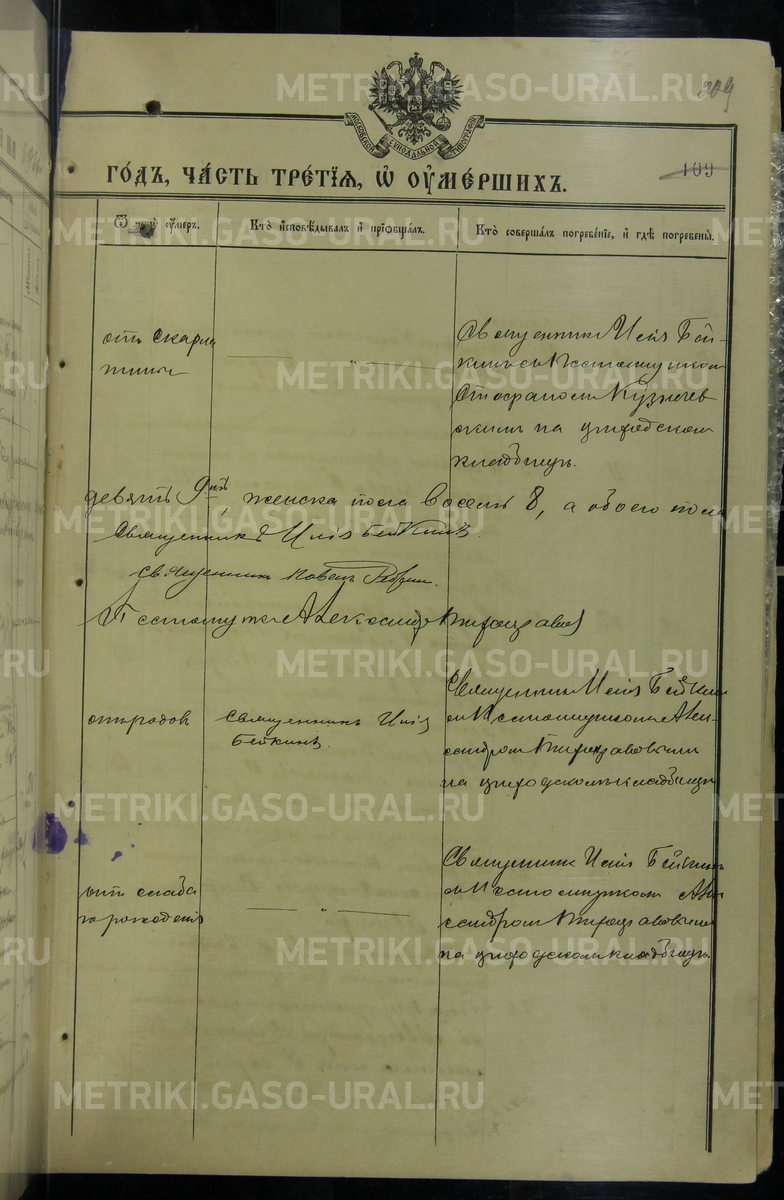 309
109
МОСКОВСКОЙ СѴНОДАЛЬНОЙ ТИПОГРАФІИ
ГО́ДЪ, ЧА́СТЬ ТРЕ́ТІѦ, Ѡ҆ ОУ҆МЕ́РШИХЪ.
Ѿ чегѡ̀ оу҆́меръ.
Кто̀ и҆сповѣ́дывалъ и҆ прїѡбща́лъ.
Кто̀ соверша́лъ погребе́нїе, и҆ гдѣ̀ погребены̀.
отъ скарла
тины
Священникъ Илія Бей-
кинъ съ псаломщикомъ
Кузнечев
скимъ на градскомъ
кладбищѣ.
девять 9, женска пола восемь 8, а обоего пола
Священникъ Илія Бейкинъ
Священникъ Павелъ
Псаломщикъ Александръ
отъ родов
Священникъ Илія
Бейкинъ.
Священникъ Илія Бейкинъ
съ Псаломщикомъ Алек-
сандромъ
на градскомъ кладбищѣ
отъ слаба
го рожденія
Священникъ Илія Бейкинъ
съ Псаломщикомъ Алек
сандромъ
на градскомъ кладбищѣ
METRIKI.GASO-URAL.RU